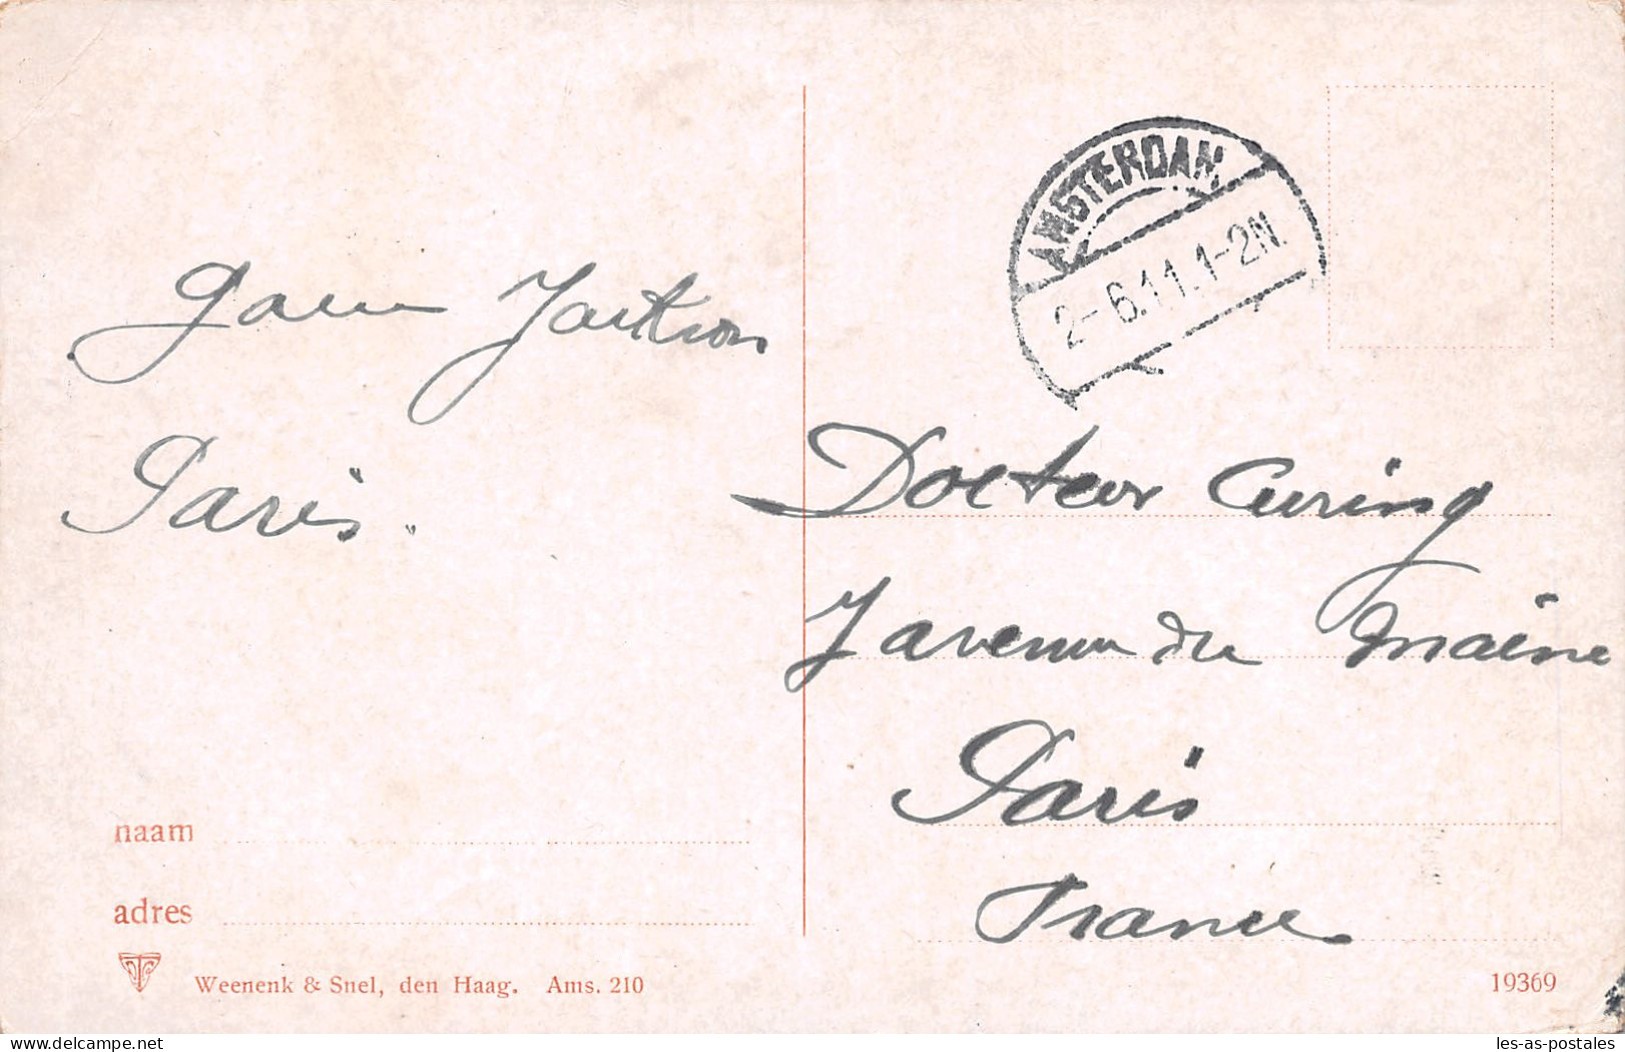 Paris.
AMSTERDAM
2-6.11.1-2N
Docteur Curing
7 avenue du Maine
Paris
France
naam
adres
Weenenk & Snel, den Haag. Ams. 210
19369
delcampe.net
les-as-postales